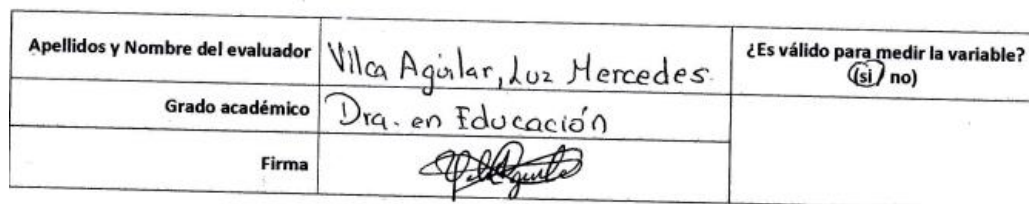 Apellidos y Nombre del evaluador Vilca Aguilar, Luz Mercedes. ¿Es válido para medir la variable?
(si/ no)
Grado académico Dra. en Educación
Firma